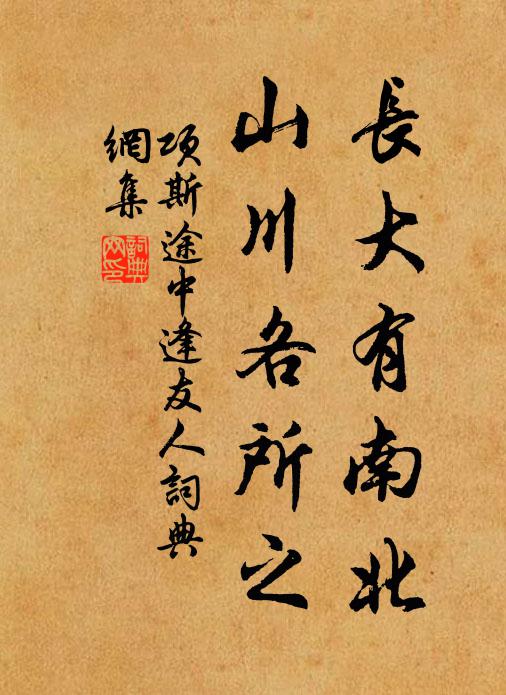 長大有南北
山川各所之
項斯途中逢友人詞典
網集
詞典
网印